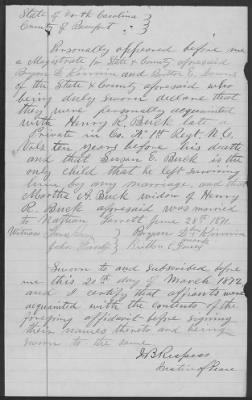 State of North Carolina }
County of Beaufort }
Personally appeared before me
a Magistrate for State & County aforesaid
Bryan and
of the State & County aforesaid who
being duly sworn declare that
they were personally acquainted
with Henry R. Buck late a
Private in Co. 1st Regt. N.C.
Vols ten years before his death
and that Susan E. Buck is the
only child that he left surviving
him by any marriage, and that
Martha A. Buck widow of Henry
R. Buck aforesaid was married
to Garrott June 20th 1870.
Witness Bryan
his
mark
Sworn to and subscribed before
me this 20th day of March 1872
and I certify that affiants were
acquainted with the contents of the
foregoing affidavit before signing
their names thereto and being
sworn to the same
Respess
Justice of Peace